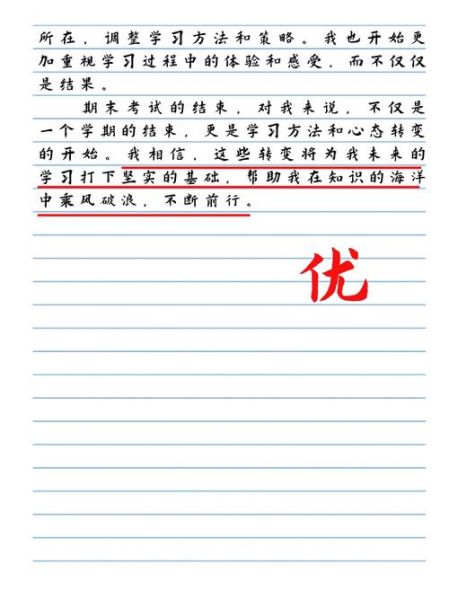 所在，调整学习方法和策略。我也开始更
加重视学习过程中的体验和感受，而不仅仅
是结果。
期末考试的结束，对我来说，不仅是
一个学期的结束，更是学习方法和心态转变
的开始。我相信，这些转变将为我未来的
学习打下坚实的基础，帮助我在知识的海洋
中乘风破浪，不断前行。
优